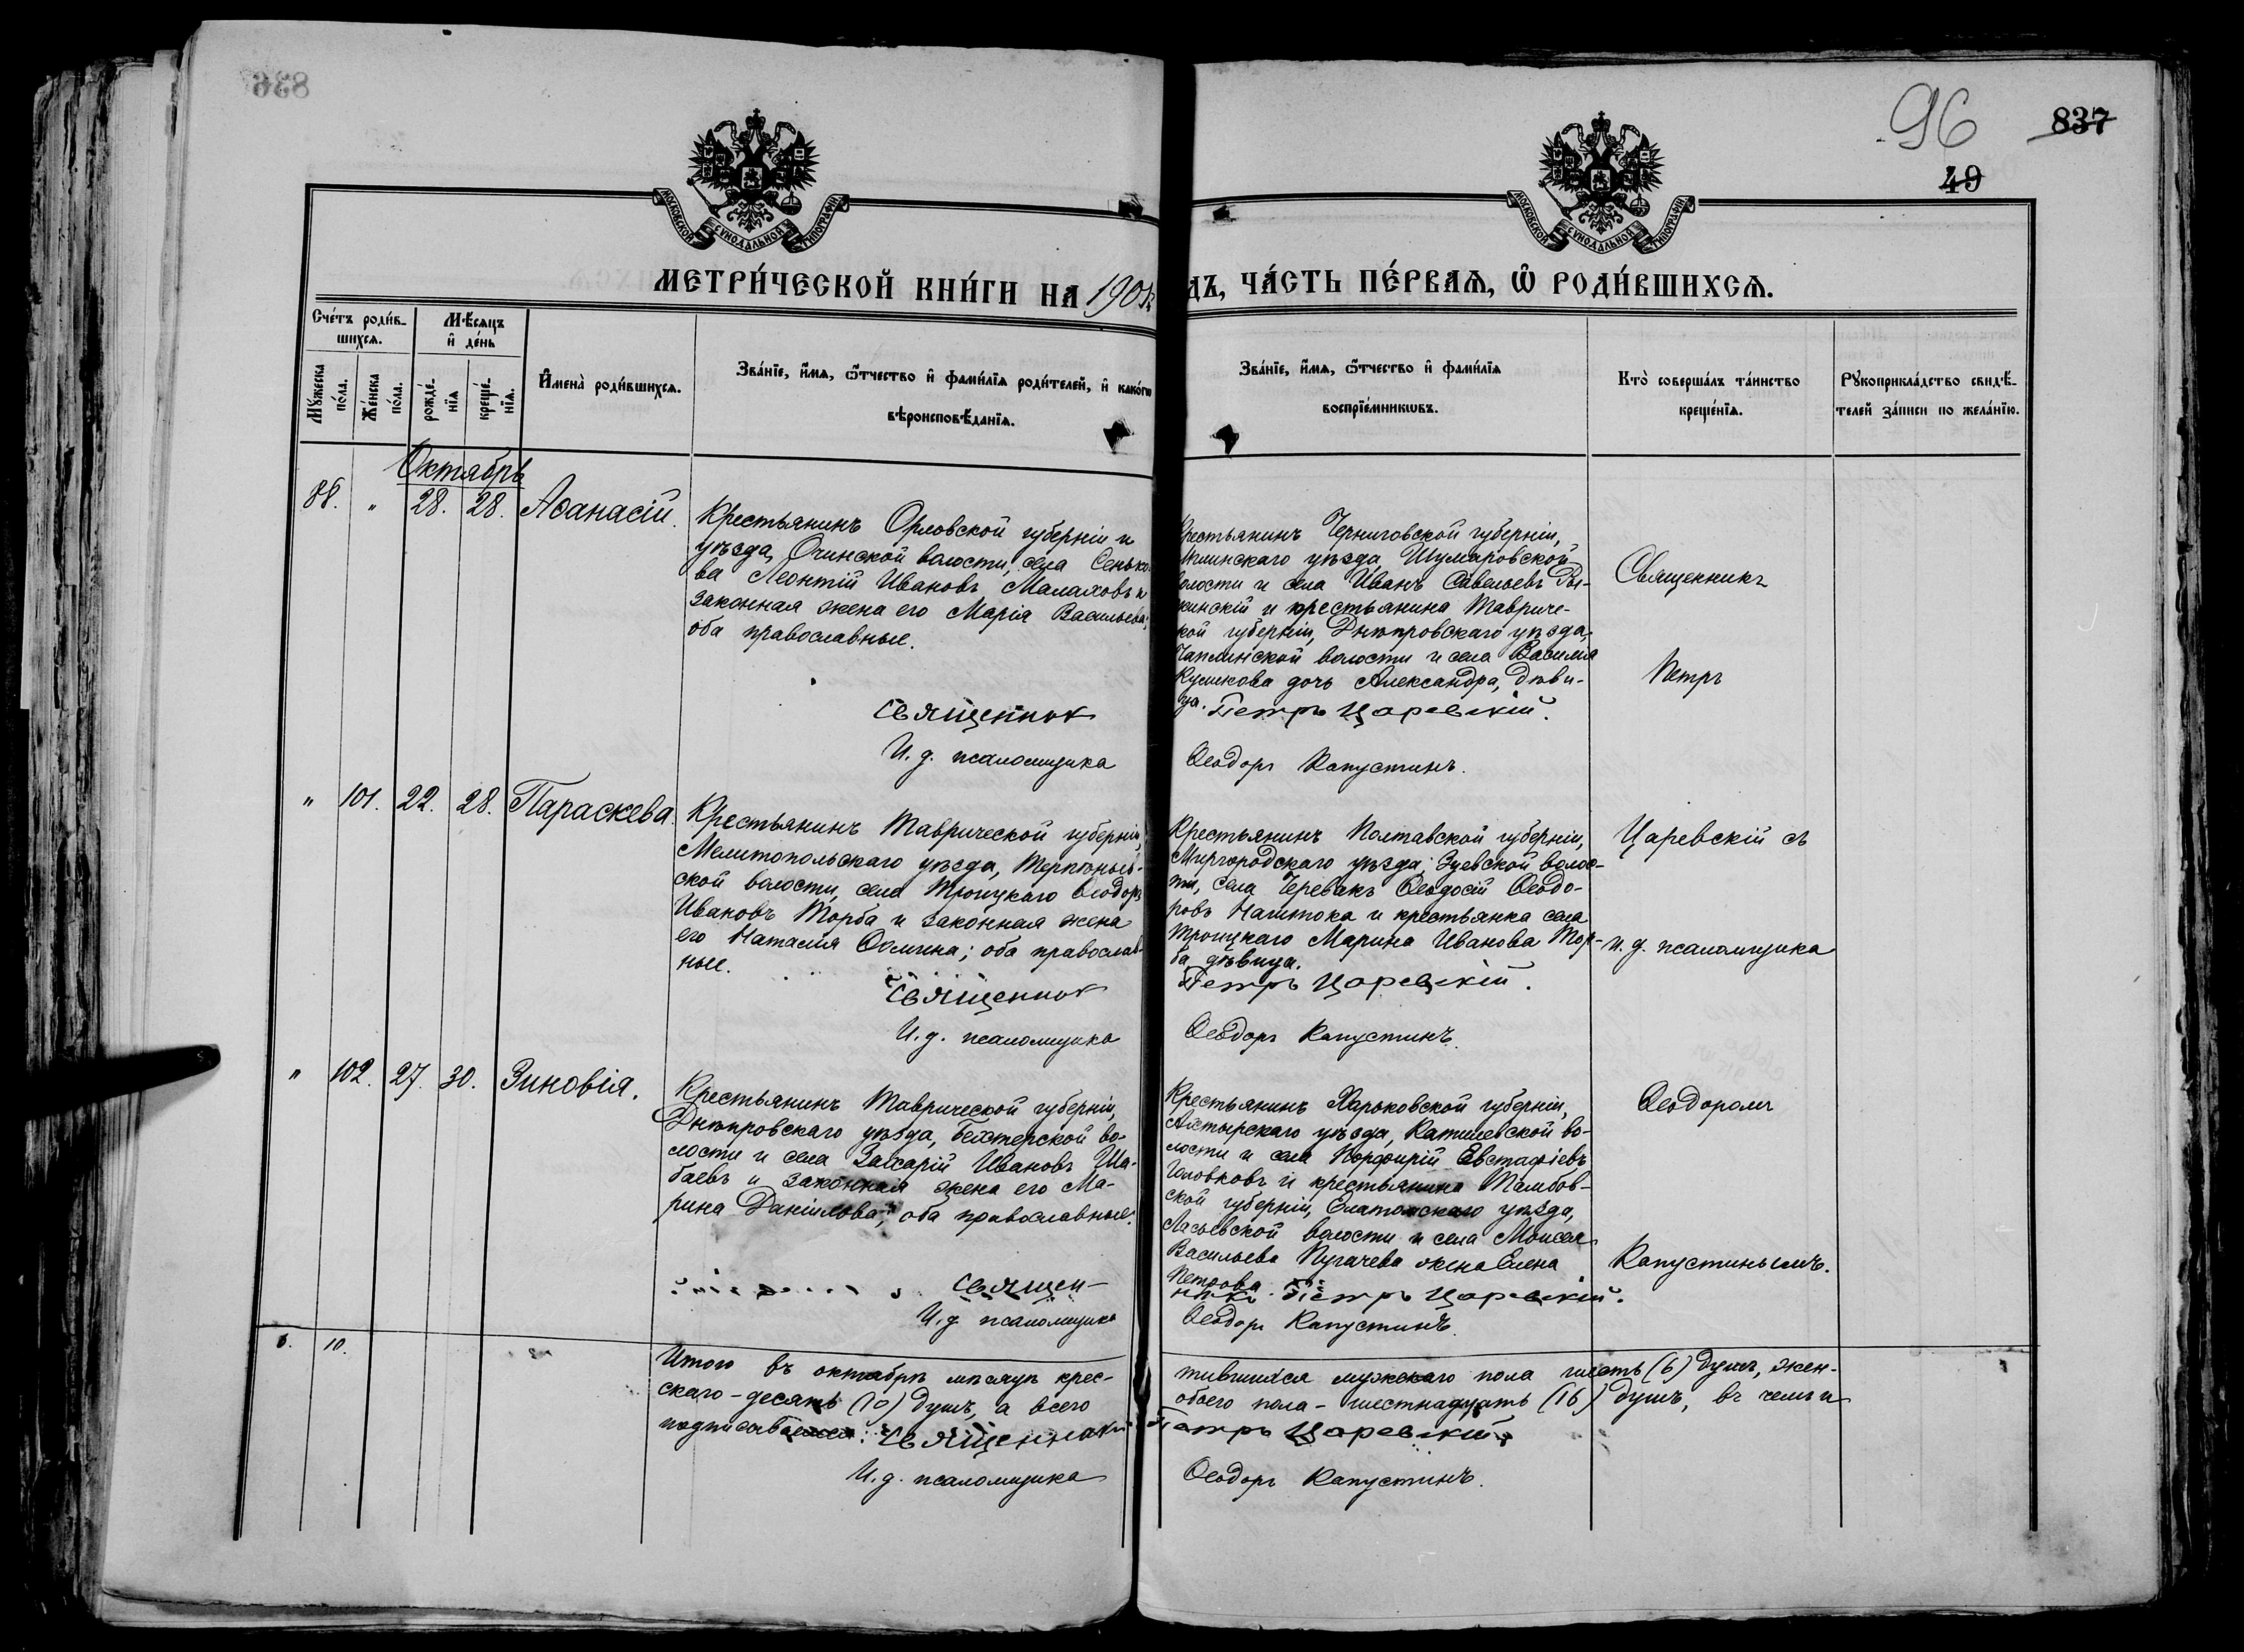 836
96
837
49
МОСКОВСКОЙ СѴНОДАЛЬНОЙ ТИПОГРАФІИ
МОСКОВСКОЙ СѴНОДАЛЬНОЙ ТИПОГРАФІИ
МЕТРИ́ЧЕСКОЙ КНИ́ГИ НА 190
ДЪ, ЧА́СТЬ ПЕ́РВАѦ, Ѡ҆ РОДИ́ВШИХСѦ.
Сче́тъ роди́в-
шихсѧ.
Мꙋ́жеска по́ла.
Же́нска по́ла.
Мѣ́сѧцъ
и҆ де́нь
рожде́-
нїѧ
креще́-
нїѧ.
И҆мена̀ роди́вшихсѧ.
Зва́нїе, и҆́мѧ, ѻ҆́тчество и҆ фами́лїѧ роди́телей, и҆ како́гѡ
вѣроисповѣ́данїѧ.
Зва́нїе, и҆́мѧ, ѻ҆́тчество и҆ фами́лїѧ
воспрїе́мникѡвъ.
Кто̀ соверша́лъ та́инство
креще́нїѧ.
Рꙋкоприкла́дство свидѣ́-
телей за́писи по жела́нїю.
Октябрь
88. " 28. 28. Аѳанасій.
Крестьянинъ Орловской губерніи и
уѣзда, Очинской волости, села Сенько-
ва Леонтій Ивановъ Малаховъ и
законная жена его Марія Васильева;
оба православные.
Священник
И. д. псаломщика
Крестьянинъ Черниговской губерніи,
уѣзда, Шумаровской
волости и села Иванъ Савельевъ
и крестьянина Тавриче-
кой губерніи, Днѣпровскаго уѣзда,
Чаплинской волости и села Василія
Куликова дочь Александра, дѣви-
ца. Петръ Царевскій.
Ѳеодоръ Капустинъ.
Священникъ
Петръ
" 101. 22. 28. Параскева.
Крестьянинъ Таврической губерніи,
Мелитопольскаго уѣзда, Терпѣньев-
ской волости, села Троицкаго Ѳеодоръ
Ивановъ Торба и законная жена
его Наталія Ѳомина; оба православ-
ные.
Священник
И. д. псаломщика
Крестьянинъ Полтавской губерніи,
Миргородскаго уѣзда, Зуевской волос-
ти, села Черевакъ Ѳеодосій Ѳеодо-
ровъ и крестьянка села
Троицкаго Марина Иванова Тор-
ба, дѣвица.
Петръ Царевскій.
Ѳеодоръ Капустинъ.
Царевскій съ
и. д. псаломщика
" 102. 27. 30. Зиновія.
Крестьянинъ Таврической губерніи,
Днѣпровскаго уѣзда, Бехтерской во-
лости и села Захарій Ивановъ Ша-
баевъ и законная жена его Ма-
рина Даніилова; оба православные.
Священ-
И. д. псаломщика
Крестьянинъ Харьковской губерніи,
Ахтырскаго уѣзда, во-
лости и села Порфирій Евстафіевъ
Головковъ и крестьянина Тамбов-
ской губерніи, Елатомскаго уѣзда,
волости и села Моисея
Васильева Пугачева жена Елена
Петрова.
никъ Петръ Царевскій.
Ѳеодоръ Капустинъ.
Ѳеодоромъ
Капустинымъ.
6. 10.
Итого въ октябрѣ мѣсяцѣ крес-
тившихся мужескаго пола шесть (6) душъ, жен-
скаго - десять (10) душъ, а всего
обоего пола - шестнадцать (16) душъ, въ чемъ и
Священникъ Петръ Царевскій.
И. д. псаломщика Ѳеодоръ Капустинъ.